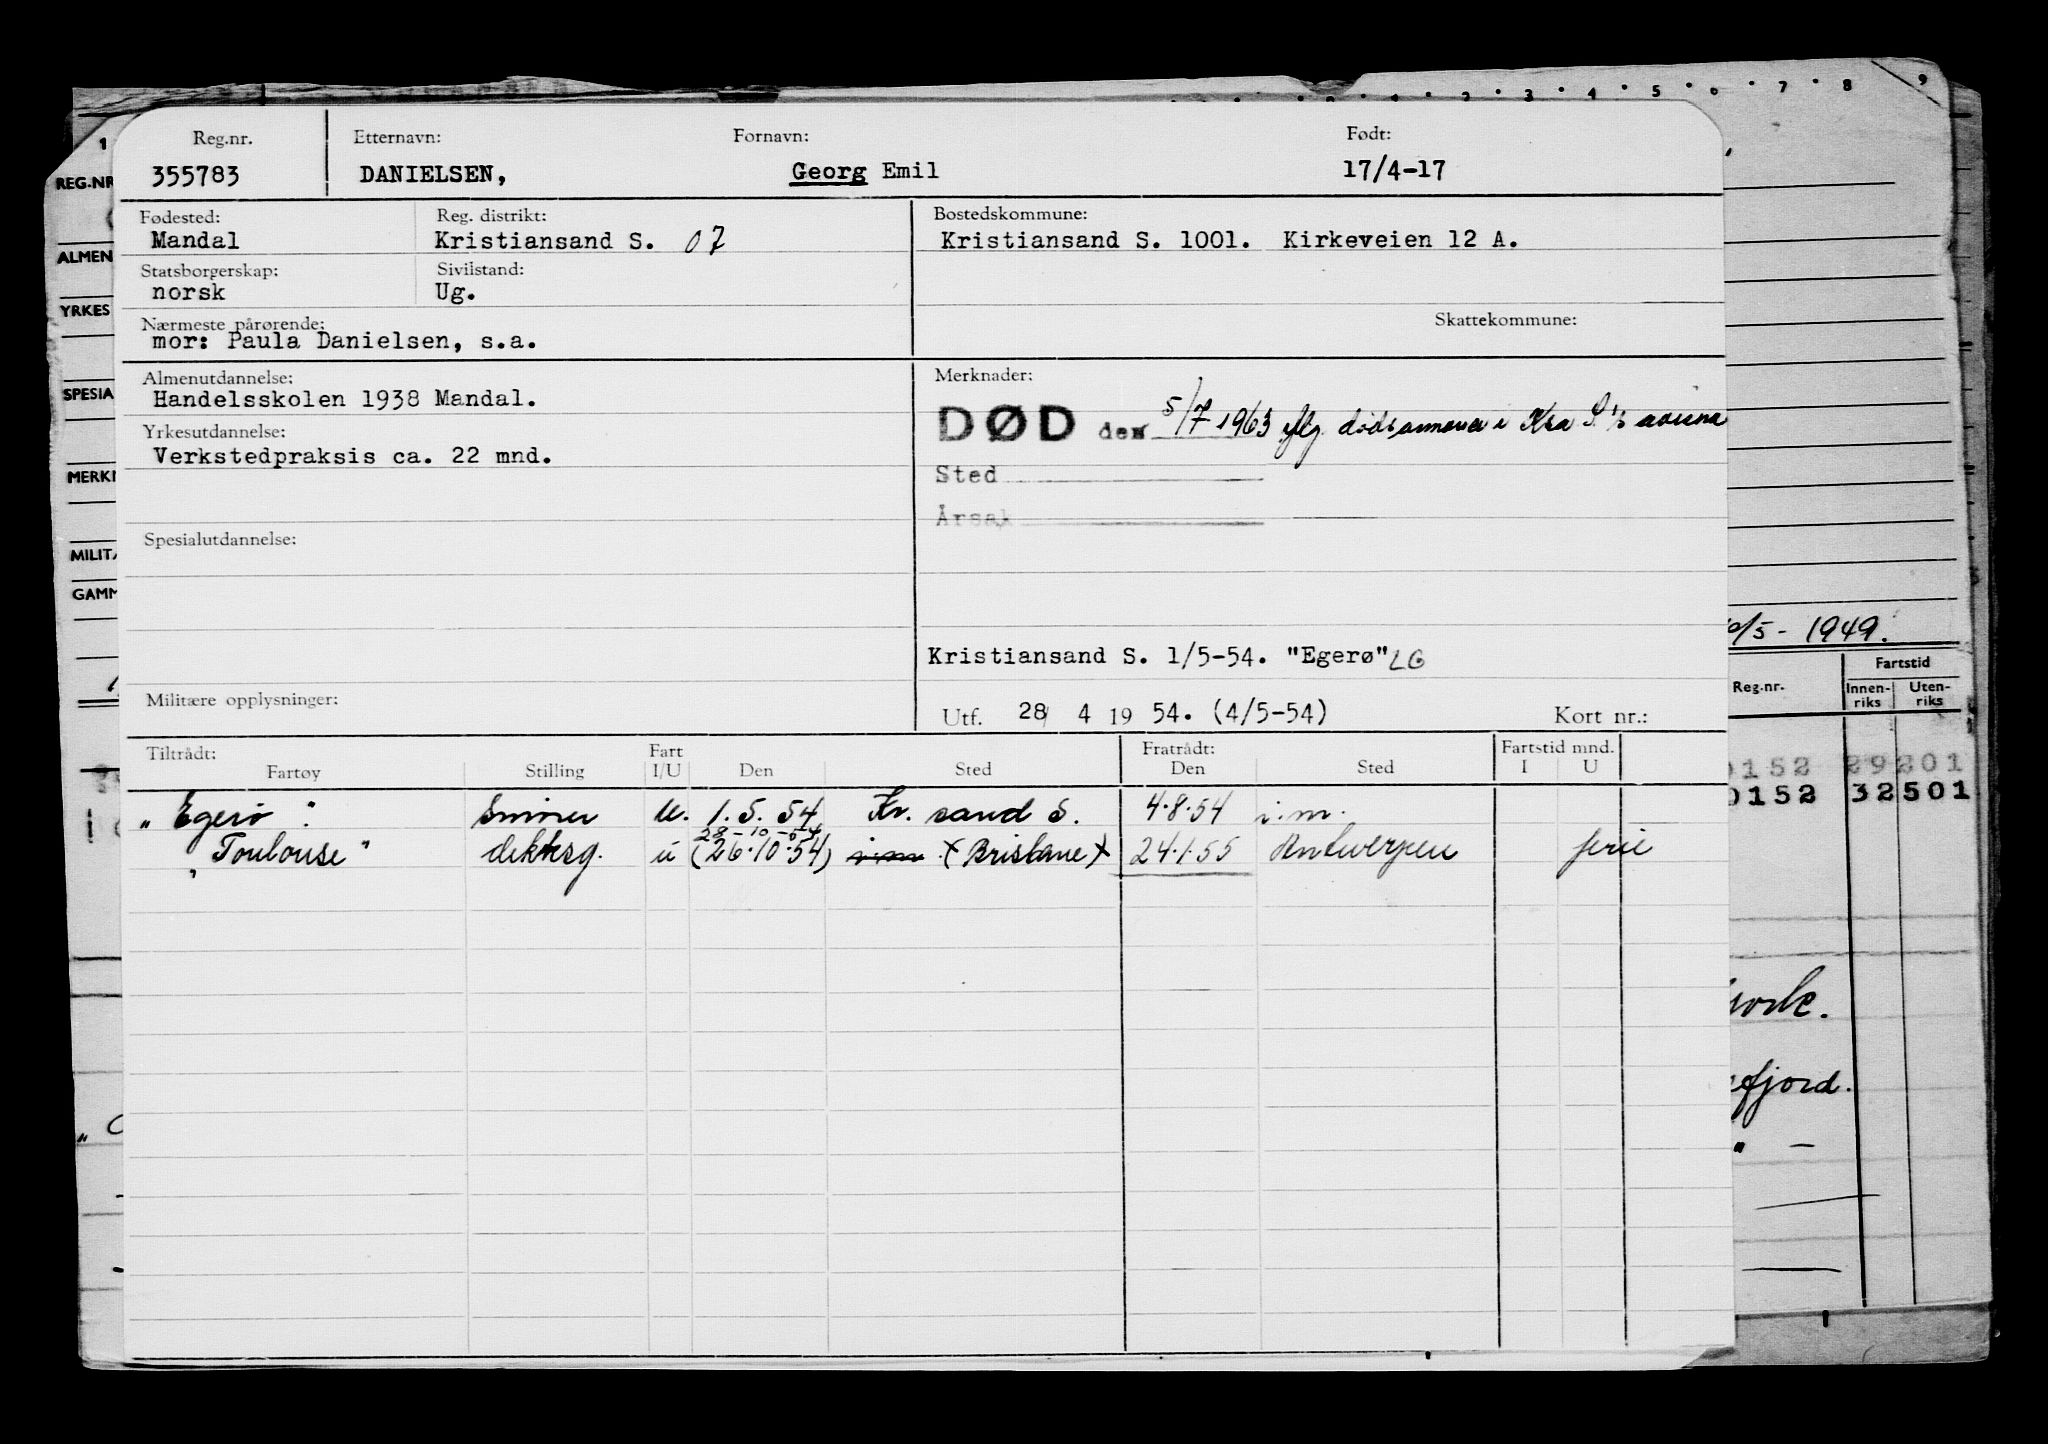 1 2 3 4 5 6 7 8 9
Reg.nr. Etternavn: Fornavn: Født:
355783 DANIELSEN, Georg Emil 17/4-17
Fødested: Reg. distrikt: Bostedskommune:
Mandal Kristiansand S. 07 Kristiansand S. 1001. Kirkeveien 12 A.
Statsborgerskap: Sivilstand:
norsk Ug.
Nærmeste pårørende: Skattekommune:
mor: Paula Danielsen, s.a.
Almenutdannelse: Merknader:
Handelsskolen 1938 Mandal.
DØD den 5/7 1963 iflg. dødsannonse i Kra S.
Yrkesutdannelse:
Verkstedpraksis ca. 22 mnd.
Sted
Årsak
Spesialutdannelse:
Kristiansand S. 1/5-54. "Egerø" LG
Militære opplysninger:
Utf. 28/ 4 19 54. (4/5-54) Kort nr.:
Tiltrådt: Fart Fratrådt: Fartstid mnd.
Fartøy Stilling I/U Den Sted Den Sted I U
"Egerø" Smører U. 1.5.54 Kr. sand S. 4.8.54 i.m.
28-10-54
"Toulouse" dekksg. u (26.10.54) i.m. (Brisbane) 24.1.55 Antwerpen ferie
REG.NR
ALMEN
YRKES
SPESIA
MERK
MILITÆ
GAMM
/5 - 1949.
Fartstid
Reg.nr. Innen-riks Uten-riks
0152 29201
0152 32501
york.
efjord.
" —